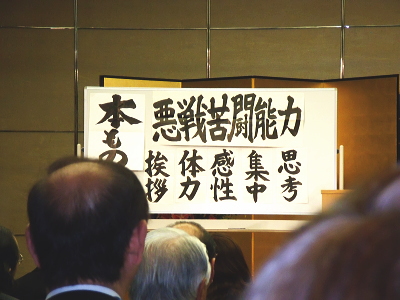 本もの
悪戦苦闘能力
思考
集中
感性
体力
挨拶